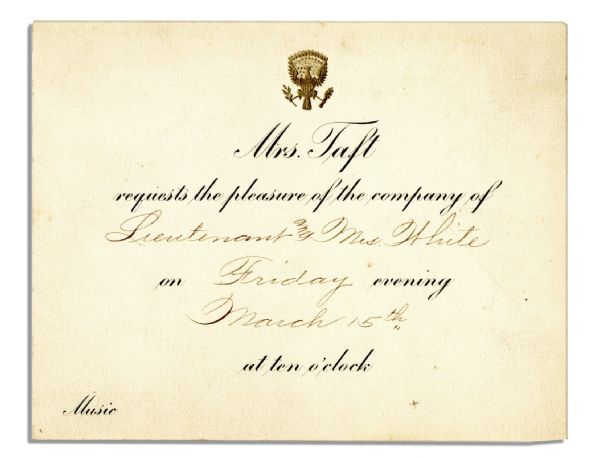 Mrs. Taft
requests the pleasure of the company of
Lieutenant and Mrs. White
on Friday evening
March 15th
at ten o'clock
Music